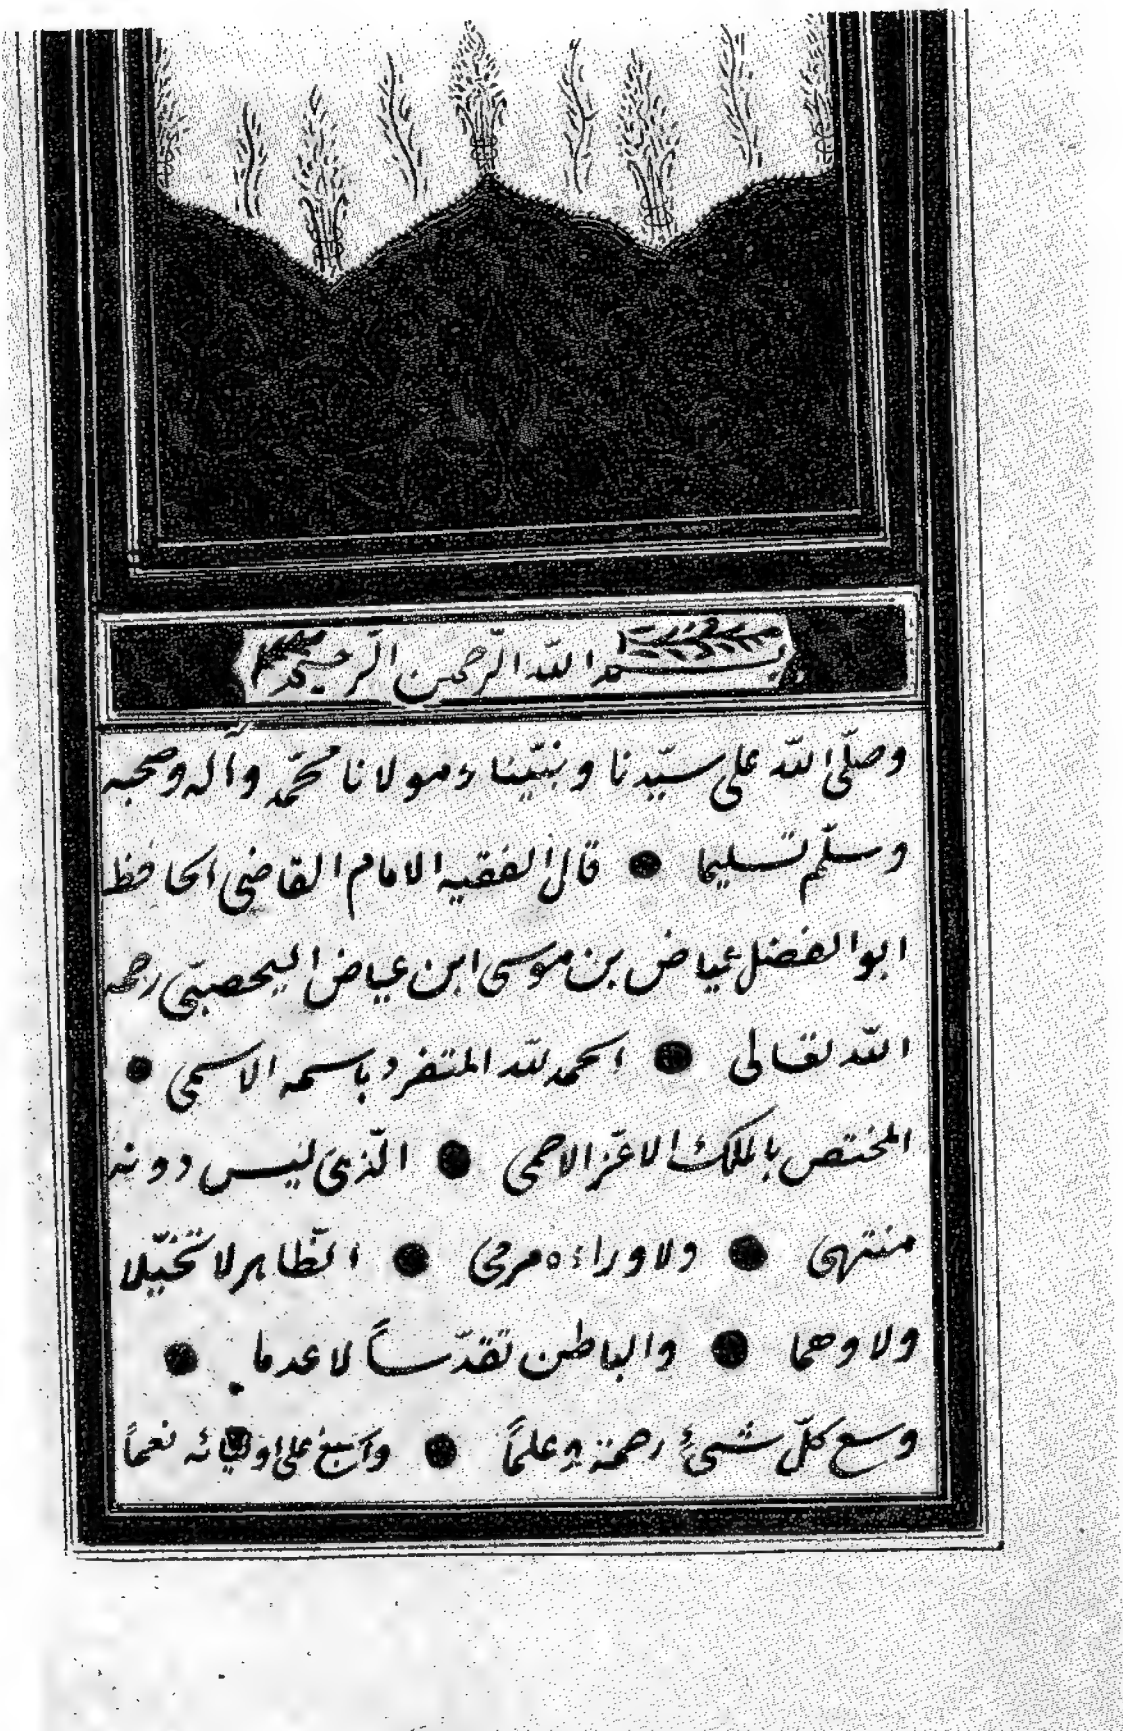 بسم الله الرّحمن الرّحيم
وصلّى الله على سيّدنا ونبيّنا ومولانا محمّد وآله وصحبه
وسلّم تسليما قال الفقيه الامام القاضى الحافظ
ابو الفضل عياض بن موسى ابن عياض اليحصبىّ رحمه
الله تعالى الحمد لله المتفرد باسمه الاسمى
المختص بالملك الاعزّ الاحمى الّذى ليس دونه
منتهى ولا وراءه مرمى الظّاهر لا تخيّلا
ولا وهما والباطن تقدّساً لا عدما
وسع كلّ شىءٍ رحمة وعلماً واسبغ على اوليائه نعماً